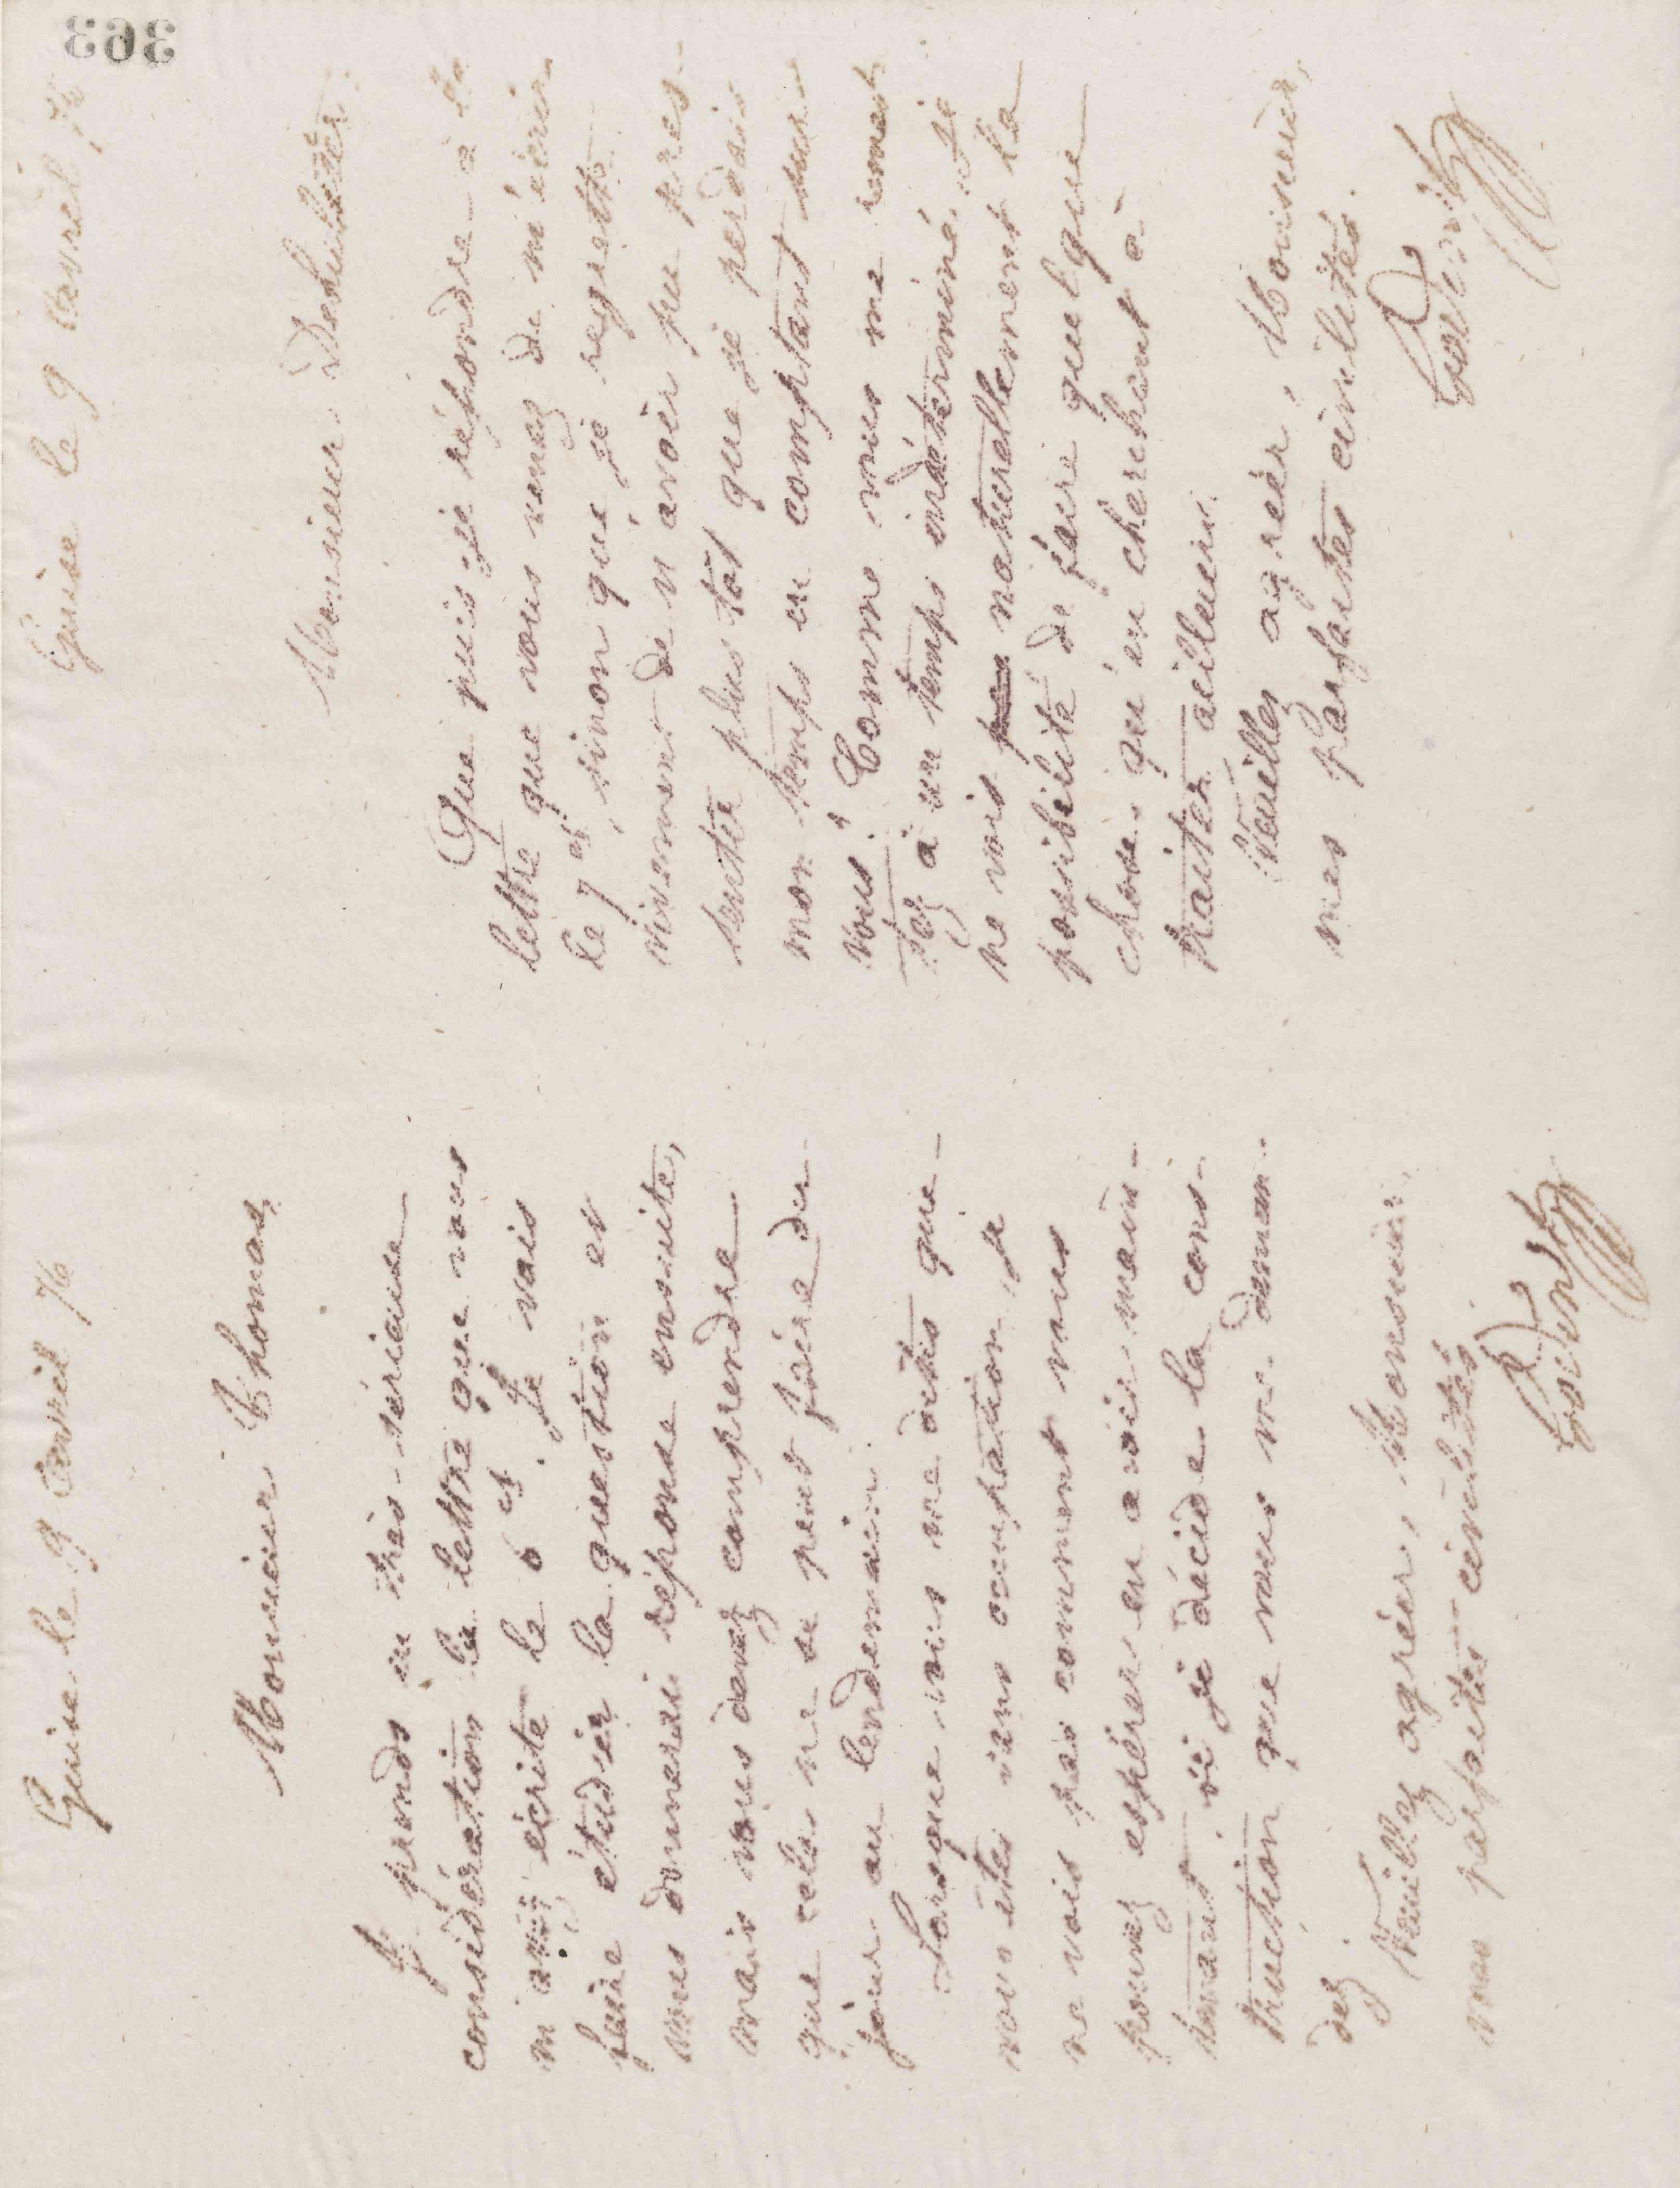 Guise le 9 avril 76
Monsieur Thomas,
Je prends en très-sérieuse
considération la lettre que vous
m'avez écrite le 6 ct. Je vais
faire étudier la question et
vous donnerai réponse ensuite,
mais vous devez comprendre
que cela ne se peut faire du
jour au lendemain.
Lorsque vous me dites que
vous êtes sans occupation, je
ne vois pas comment vous
pouvez espérer en avoir main-
tenant, si je décide la cons-
truction que vous me deman-
dez.
Veuillez agréer, Monsieur,
mes parfaites civilités.
Godin
363
Guise le 9 avril 76
Monsieur
Que puis-je répondre à la
lettre que vous venez de m'écrire
le 7 ct, sinon que je regrette
vivement de n'avoir pu pres-
sentir plus tôt que je perdais
mon temps en comptant sur
vous. Comme vous me remet-
tez à un temps indéterminé, je
ne vois naturellement la
possibilité de faire quelque
chose, qu'en cherchant à
traiter ailleurs.
Veuillez agréer, Monsieur,
mes parfaites civilités.
Godin